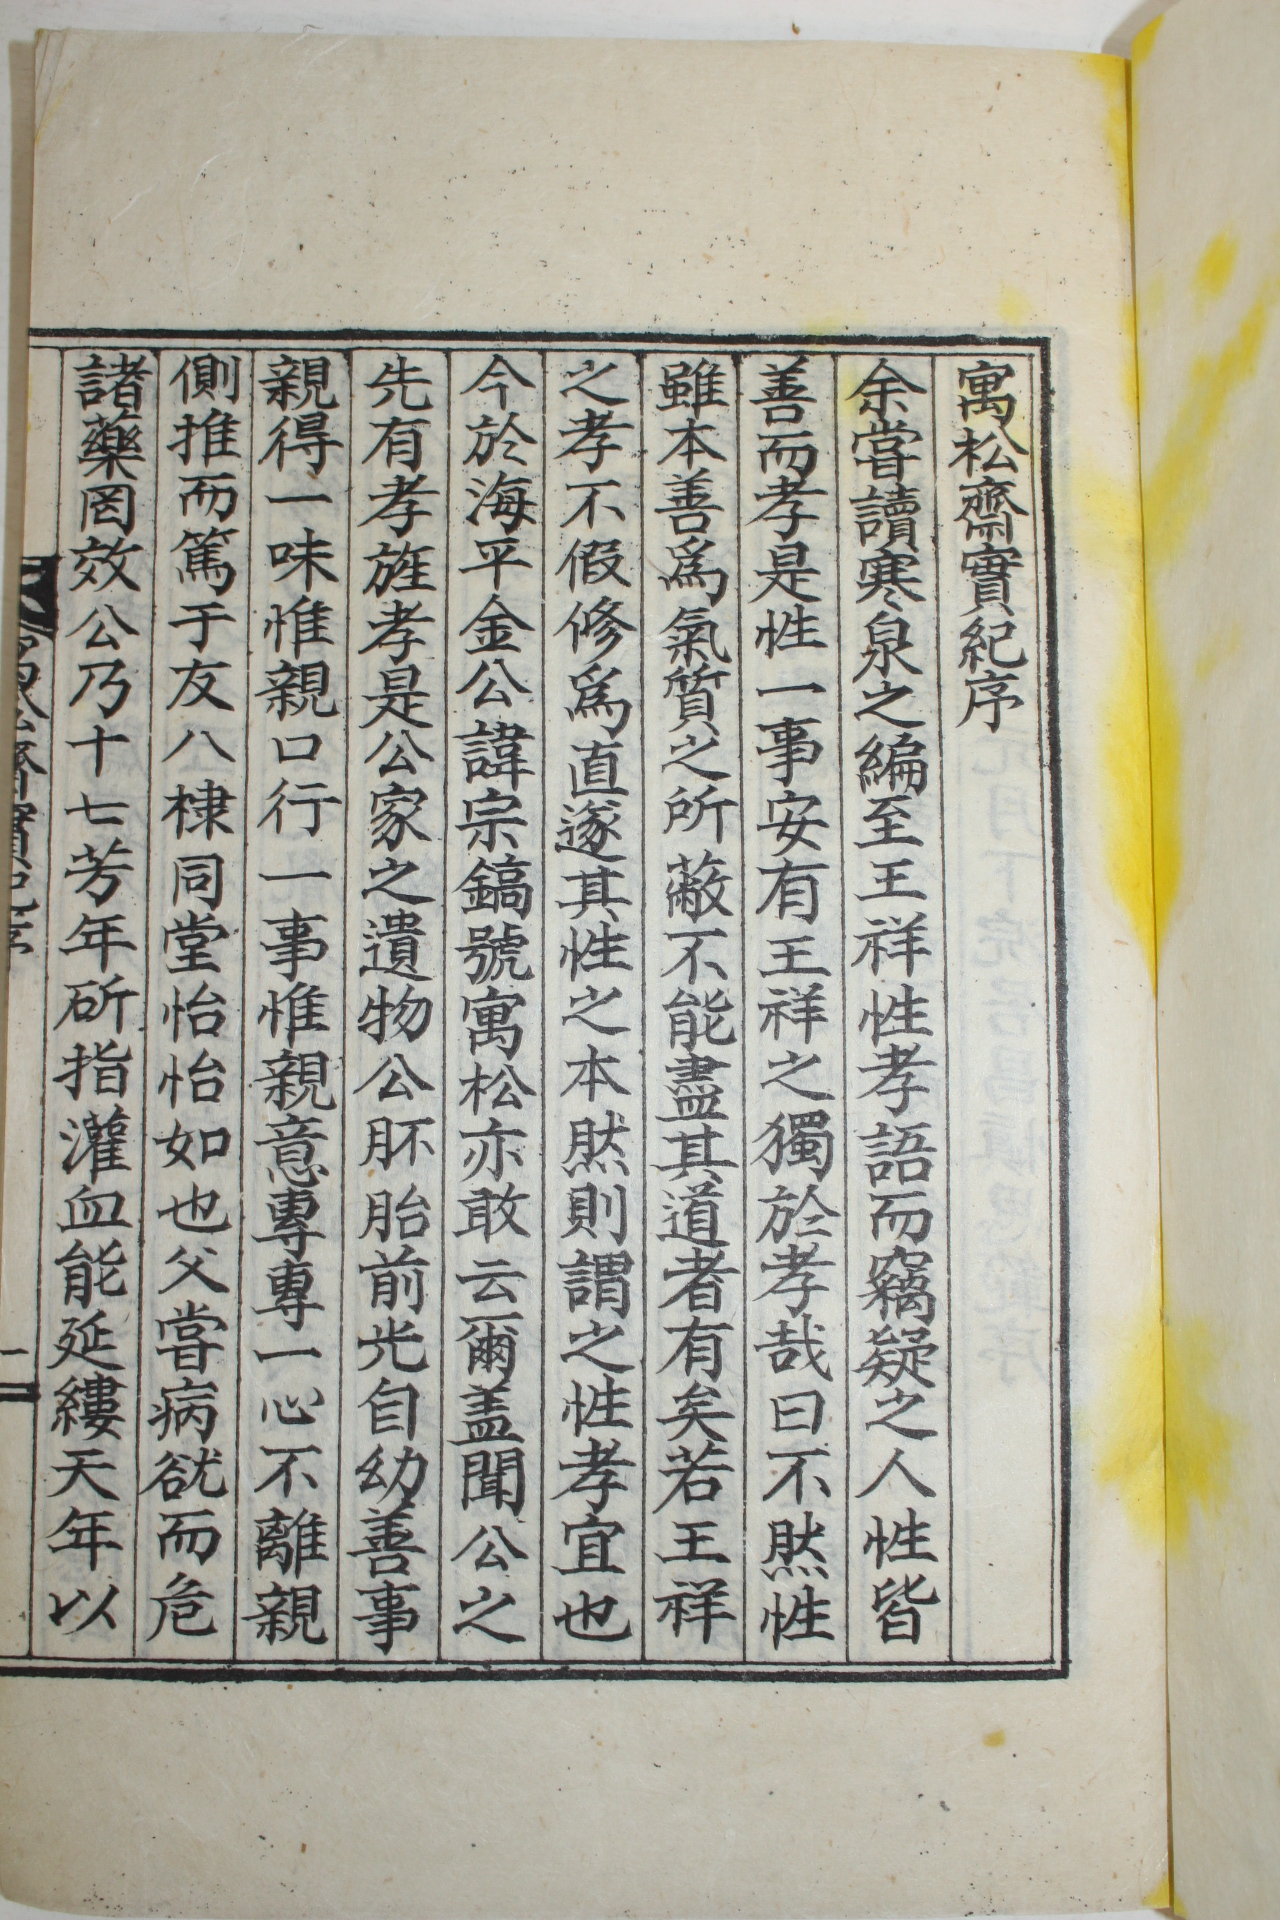 寓松齋實紀序
余嘗讀寒泉之編至王祥性孝語而竊疑之人性皆
善而孝是性一事安有王祥之獨於孝哉曰不然性
雖本善爲氣質之所蔽不能盡其道者有矣若王祥
之孝不假修爲直遂其性之本然則謂之性孝宜也
今於海平金公諱宗鎬號寓松亦敢云爾盖聞公之
先有孝旌孝是公家之遺物公胚胎前光自幼善事
親得一味惟親口行一事惟親意專專一心不離親
側推而篤于友八棣同堂怡怡如也父嘗病欲而危
諸藥罔效公乃十七芳年斫指灌血能延縷天年以
一